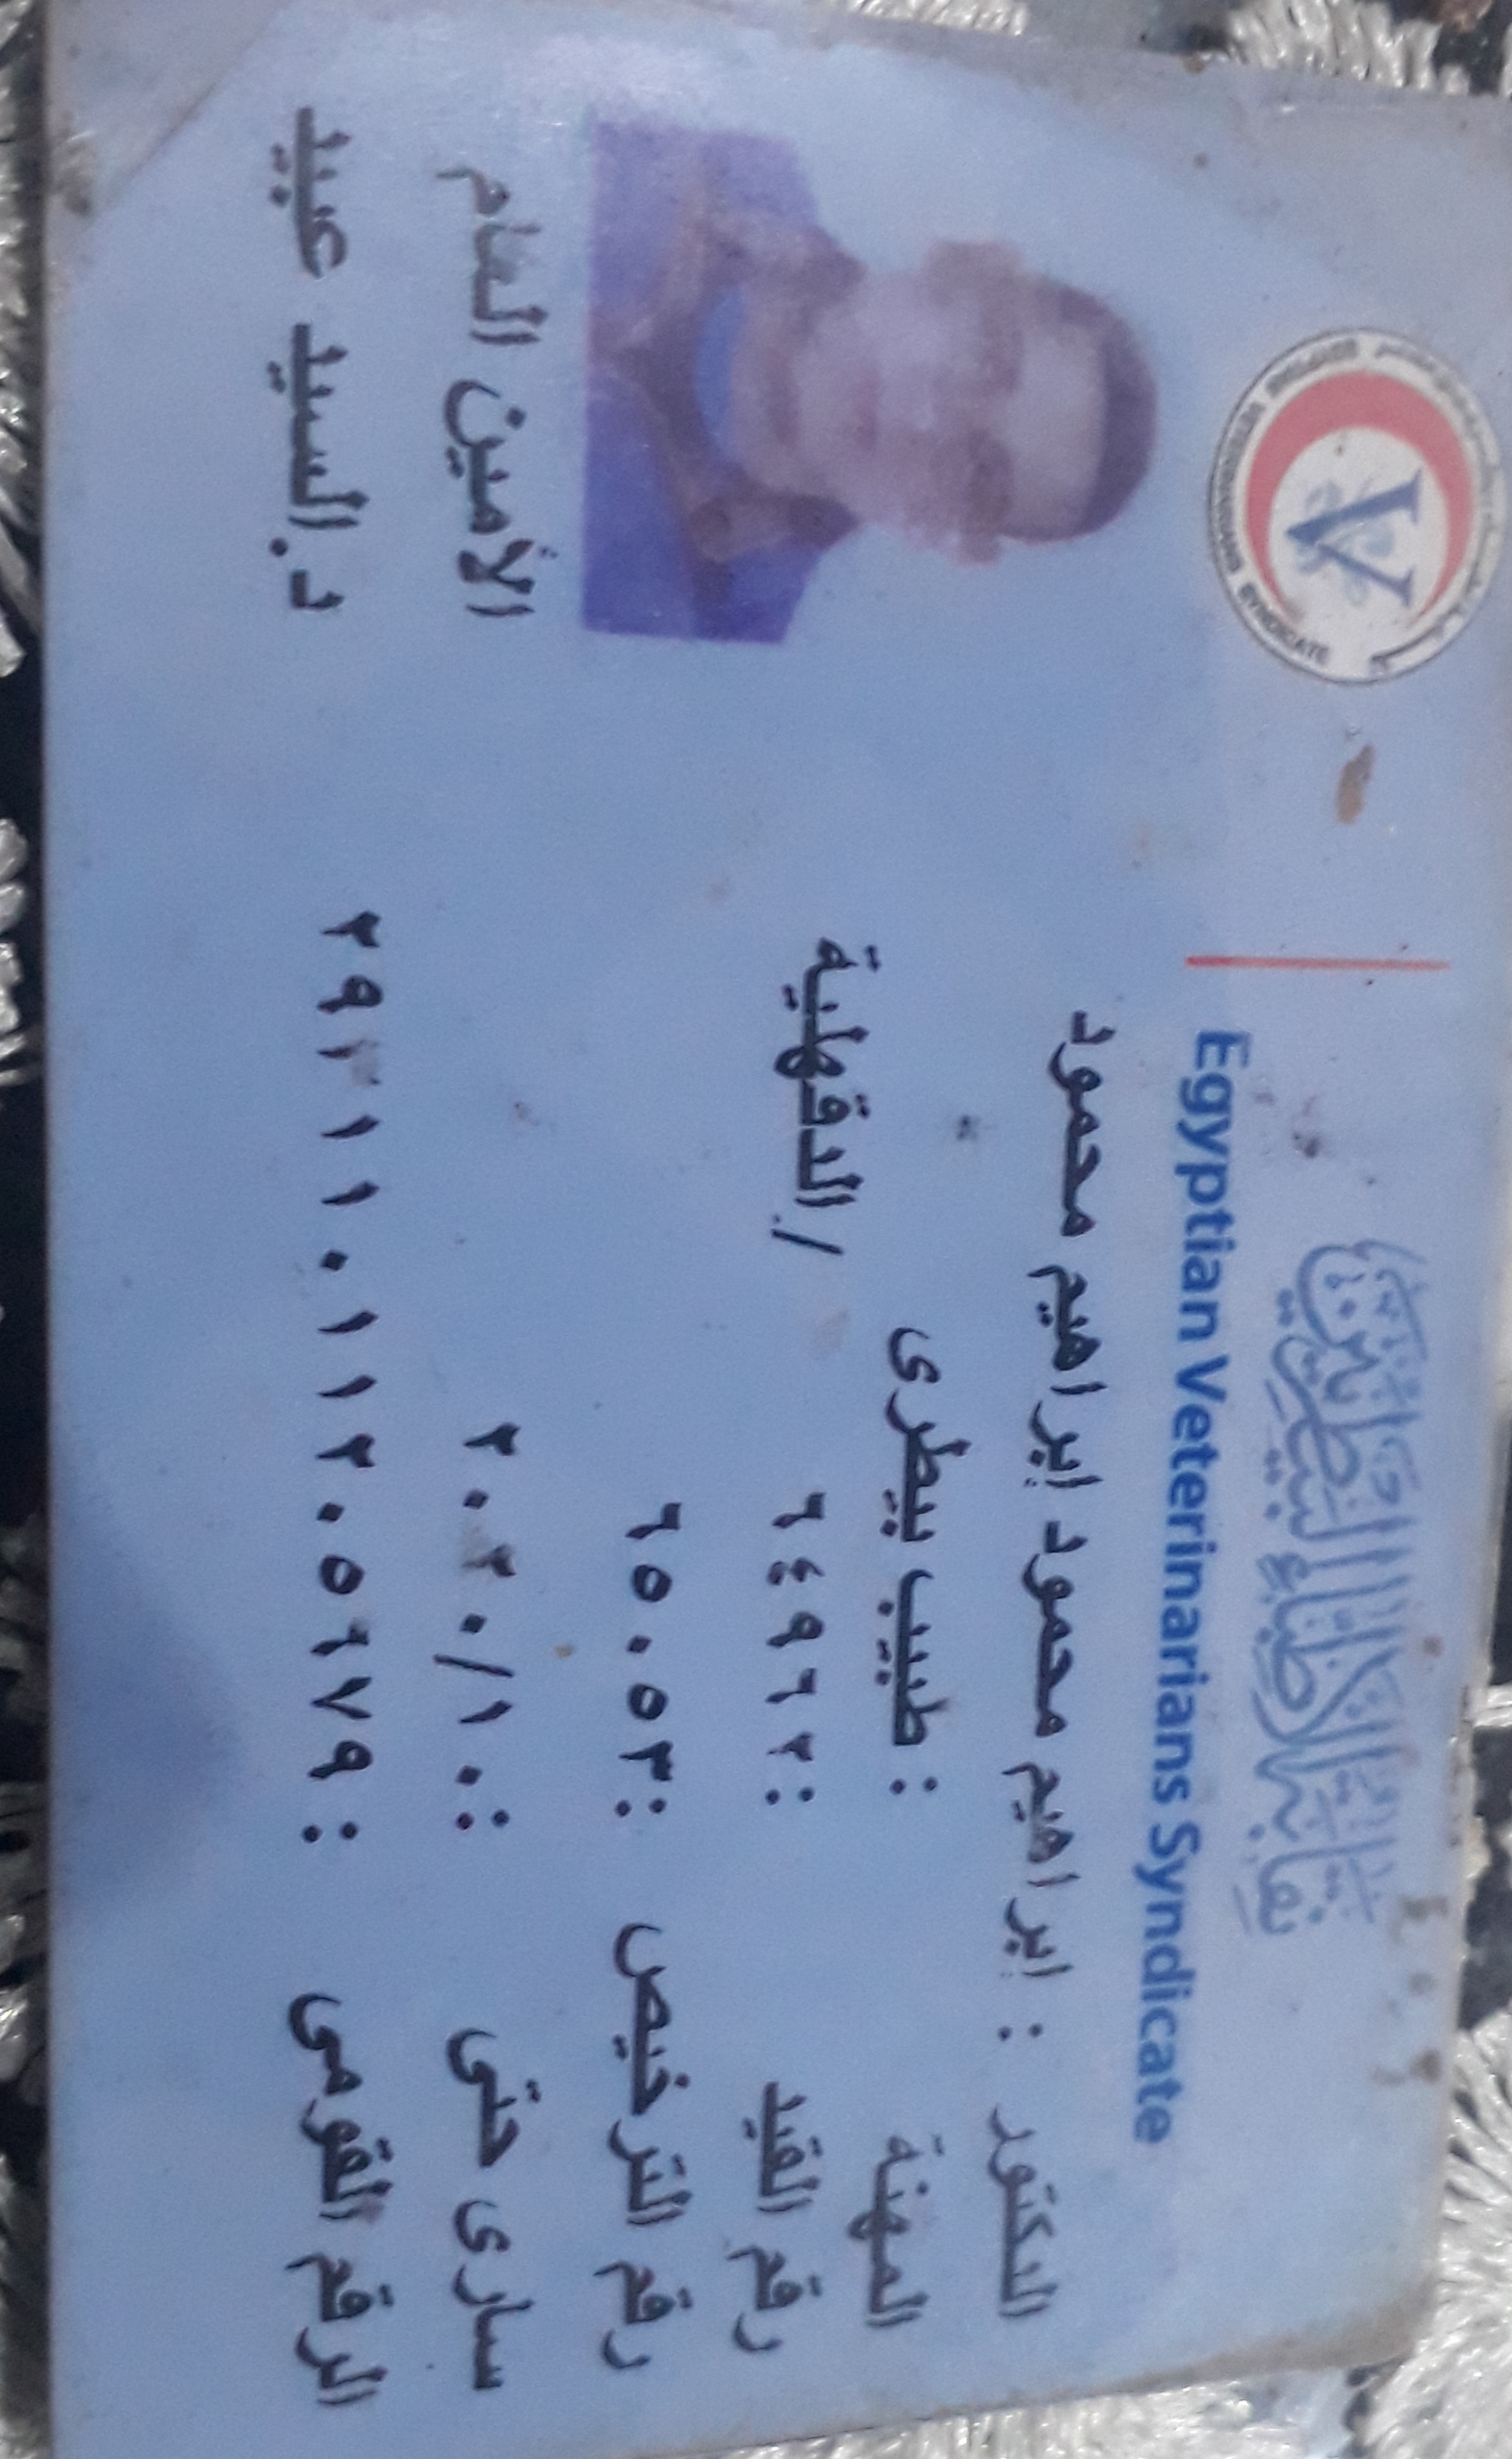 نقابة الأطباء البيطريين
Egyptian Veterinarians Syndicate
الدكتور : إبراهيم محمود إبراهيم محمود
المهنة : طبيب بيطرى
رقم القيد : ٦٤٩٦٢ / الدقهلية
رقم الترخيص : ٦٥٠٥٣
سارى حتى : ٢٠٢٠/١٠
الرقم القومى :
الأمين العام
د.السيد عبيد